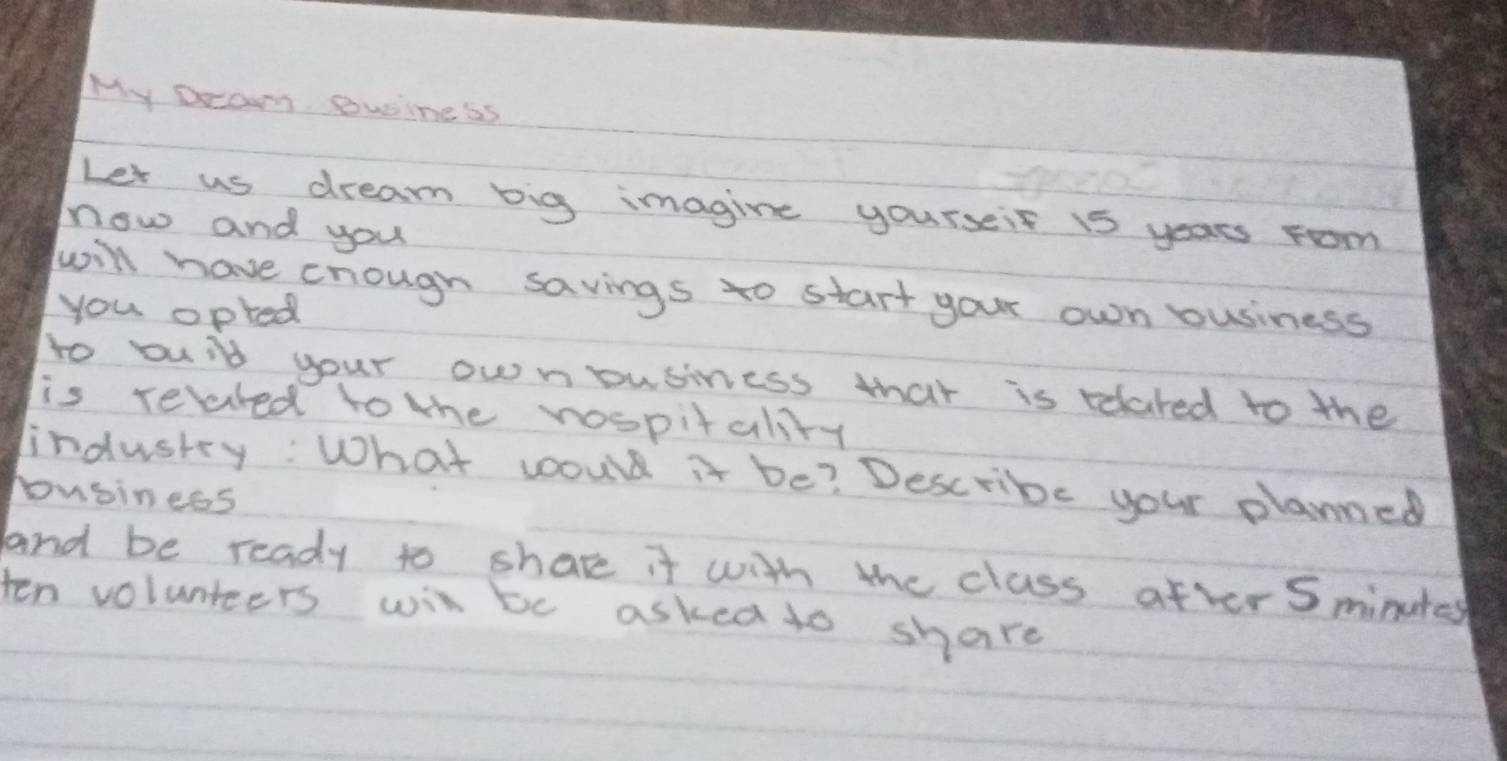 My Dream Business
Let us dream big imagine yourself 15 years from
now and you
will have enough savings to start your own business
you opted
to build your own business that is related to the
is related to the hospitality
industry : What would it be? Describe your planned
business
and be ready to share it with the class after 5 minutes
ten volunteers will be asked to share